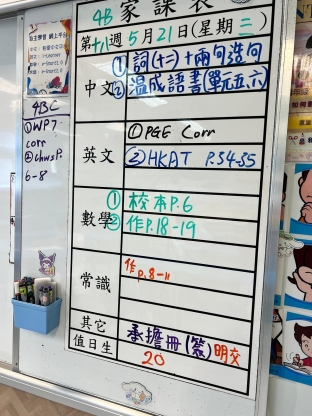 4B 家課表
第十八週 5月21日(星期三)
中文
① 詞(十二)+兩句造句
② 温成語書(單元五六)
英文
① PGE Corr
② HKAT P.54-55
數學
① 校本P.6
② 作P.18-19
常識
作p.8-11
其它
承擔冊(簽)明交
值日生
20
4BC
① WP7
corr
② chwsP.
6-8